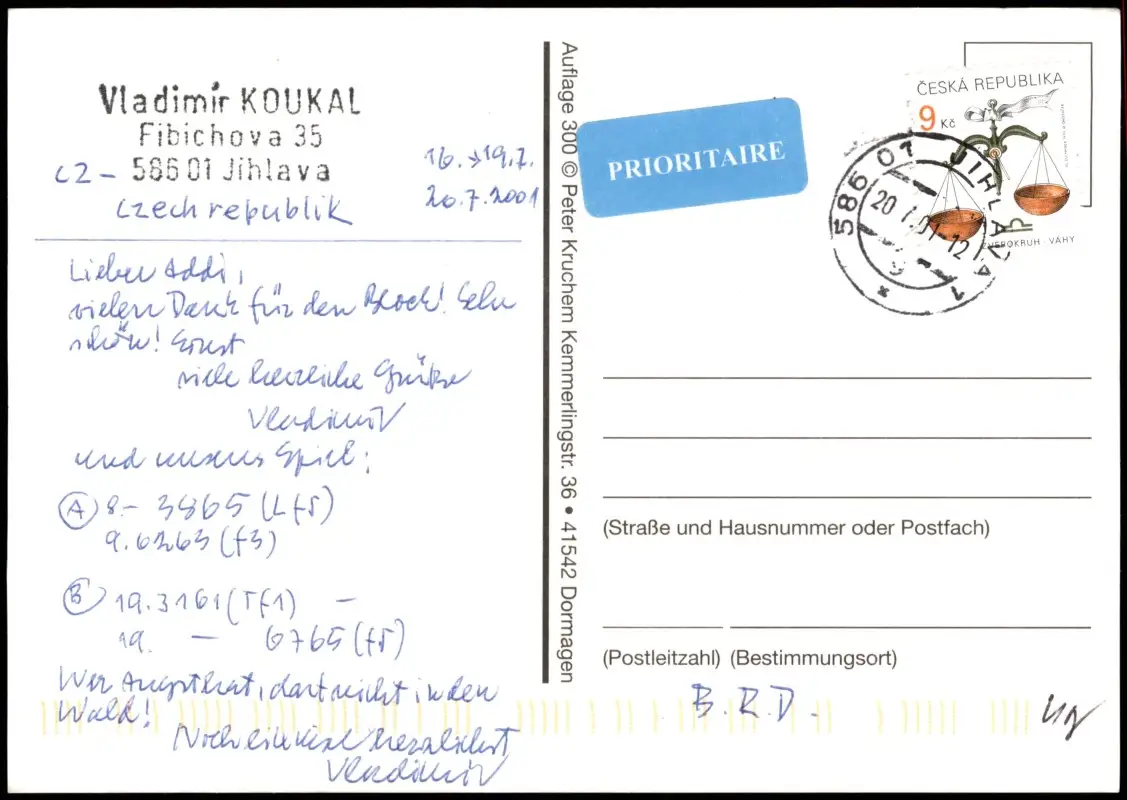 Vladimír KOUKAL
Fibichova 35
CZ - 586 01 Jihlava
Czech republik
16. → 19.7.
20.7.2001
Lieber Addi,
vielen Dank für den Block! Sehr
schön! Sonst
viele herzliche Grüße
Vladimír
und unsers Spiel:
A 8.- 3865 (Lf5)
9. 6263 (f3)
B 19. 3161 (Tf1) -
19. - 6765 (f5)
Wer Angst hat, darf nicht in den
Wald!
Noch einmal herzlichst
Vladimír
Auflage 300 © Peter Kruchem Kemmerlingstr. 36 • 41542 Dormagen
PRIORITAIRE
ČESKÁ REPUBLIKA
9 Kč
ZVĚROKRUH - VÁHY
586 01 JIHLAVA 1
20.7.01-12
(Straße und Hausnummer oder Postfach)
(Postleitzahl) (Bestimmungsort)
B.R.D.